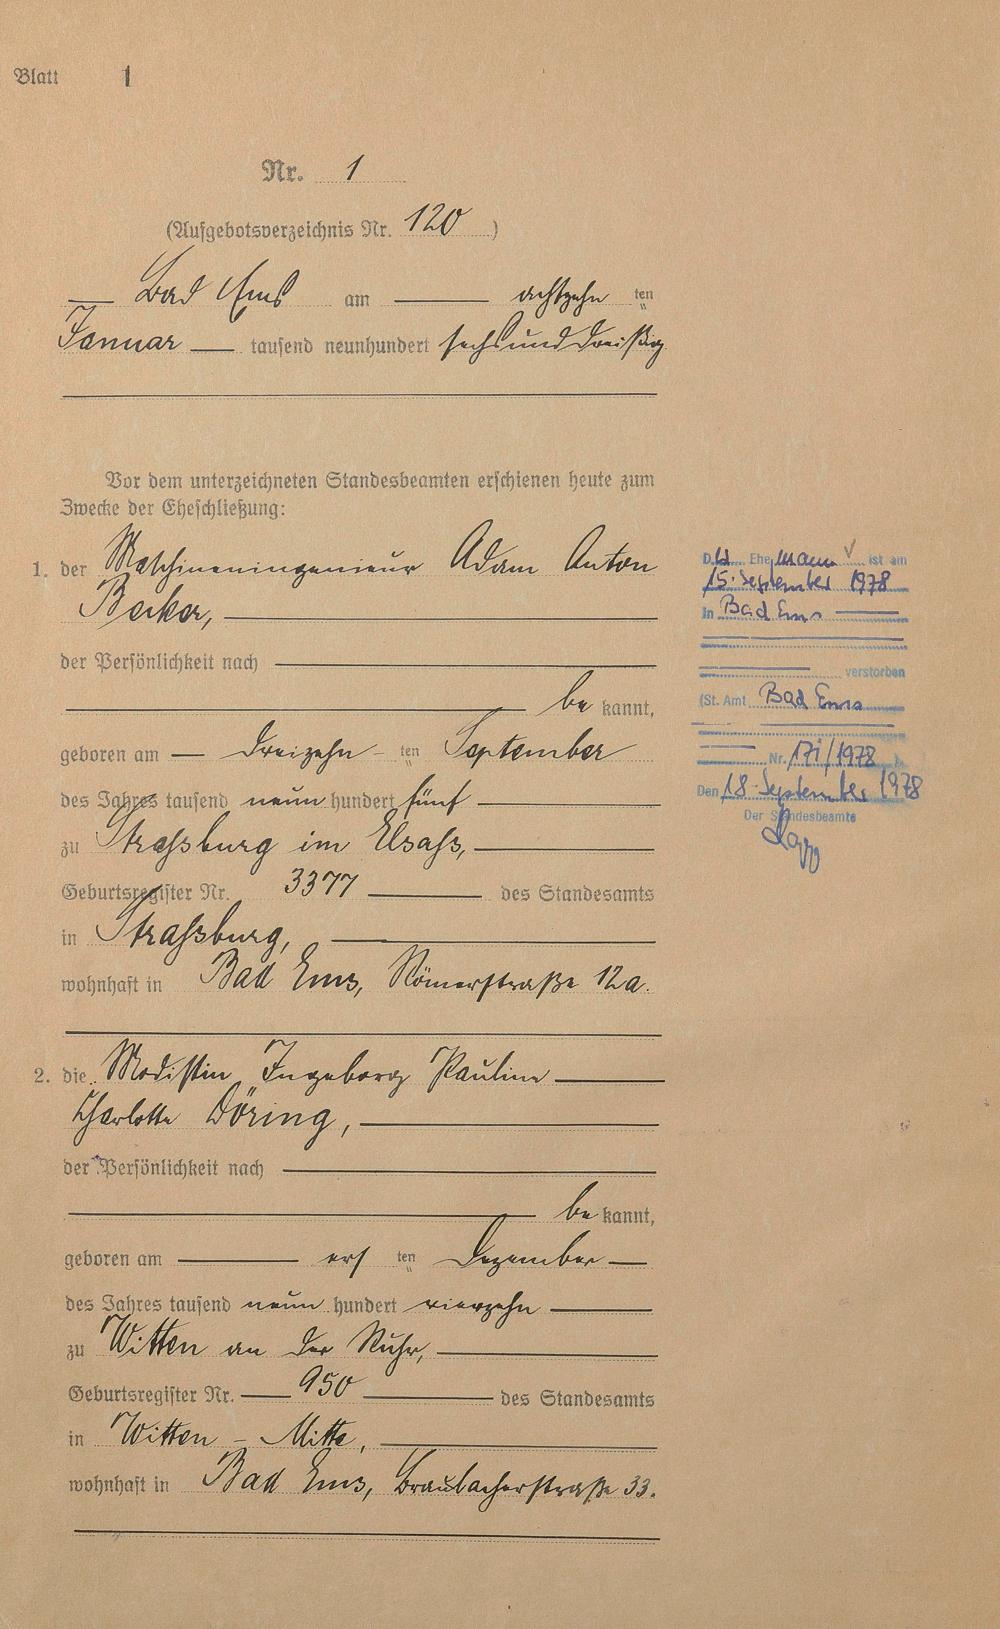 Blatt 1
Nr. 1
(Aufgebotsverzeichnis Nr. 120)
Bad Ems am achtzehn ten
Januar tausend neunhundert sechsunddreißig
Vor dem unterzeichneten Standesbeamten erschienen heute zum
Zwecke der Eheschließung:
1. der Maschineningenieur Adam Anton
Becker,
der Persönlichkeit nach
be kannt,
geboren am dreizehn ten September
des Jahres tausend neun hundert fünf
zu Straßburg im Elsaß,
Geburtsregister Nr. 3377 des Standesamts
in Straßburg,
wohnhaft in Bad Ems, Römerstraße 12a.
2. die Modistin Ingeborg Pauline
Charlotte Döring,
der Persönlichkeit nach
be kannt,
geboren am ers ten Dezember
des Jahres tausend neun hundert vierzehn
zu Witten an der Ruhr,
Geburtsregister Nr. 950 des Standesamts
in Witten - Mitte,
wohnhaft in Bad Ems, Braubacherstraße 33.
Der Ehemann ist am
15. September 1978
in Bad Ems
verstorben
(St. Amt Bad Ems
Nr. 171/1978 ).
Den 18. September 1978
Der Standesbeamte